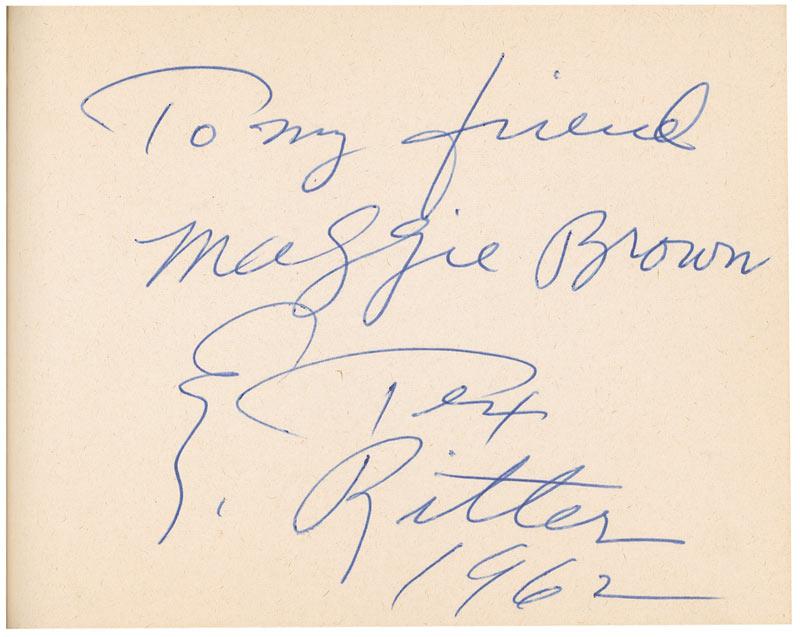 To my friend
Maggie Brown
& Tex
Ritter
1962